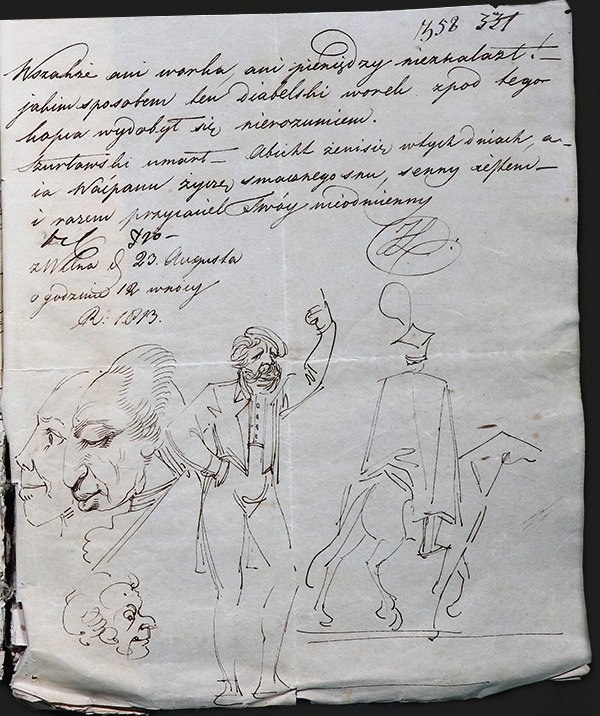 1358 331
Wszakże ani worka, ani pieniędzy nieznalazł!
jakim sposobem ten diabelski worek zpod tego
kapia wydobył się nierozumiem.
umarł— Abicht żenisię wtych dniach, a–
ia Waćpanu życzę smacznego snu, senny iestem—
i razem przyiaciel Twóy nieodmienny
z Wilna d 23. Augusta
o godzinie 12 wnocy
R: 1813.